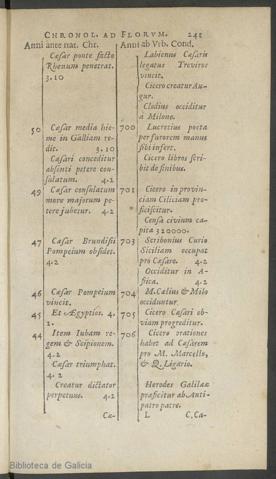 CHRONOL. AD FLORVM. 245
Anni ante nat. Chr.
Cæsar ponte facto
Rhenum penetrat.
3. 10
50 Cæsar media hie-
me in Galliam re-
dit. 3. 10
Cæsari conceditur
absenti petere con-
sulatum. 4. 2
49 Cæsar consulatum
more majorum pe-
tere jubetur. 4. 2
47 Cæsar Brundisii
Pompeium obsidet.
4. 2
46 Cæsar Pompeium
vincit.
45 Et Ægyptios. 4.
2.
44 Item Iubam re-
gem & Scipionem.
4. 2
Cæsar triumphat.
4. 2
Creatur dictator
perpetuus. 4. 2
Ca-
Anni ab Vrb. Cond.
Labienus Cæsaris
legatus Treviros
vincit.
Cicero creatur Au-
gur.
Clodius occiditur
à Milone.
700 Lucretius poeta
per furorem manus
sibi infert.
Cicero libros scri-
bit de finibus.
701 Cicero in provin-
ciam Ciliciam pro-
ficiscitur.
Censa civium ca-
pita 320000.
703 Scribonius Curio
Siciliam occupat
pro Cæsare. 4. 2
Occiditur in A-
frica. 4. 2
704 M. Cælius & Milo
occiduntur.
705 Cicero Cæsari ob-
viam progreditur.
706 Cicero orationes
habet ad Cæsarem
pro M. Marcello,
& Q. Ligario.
Herodes Galilææ
præficitur ab Anti-
patro patre.
L C. Ca-
Biblioteca de Galicia